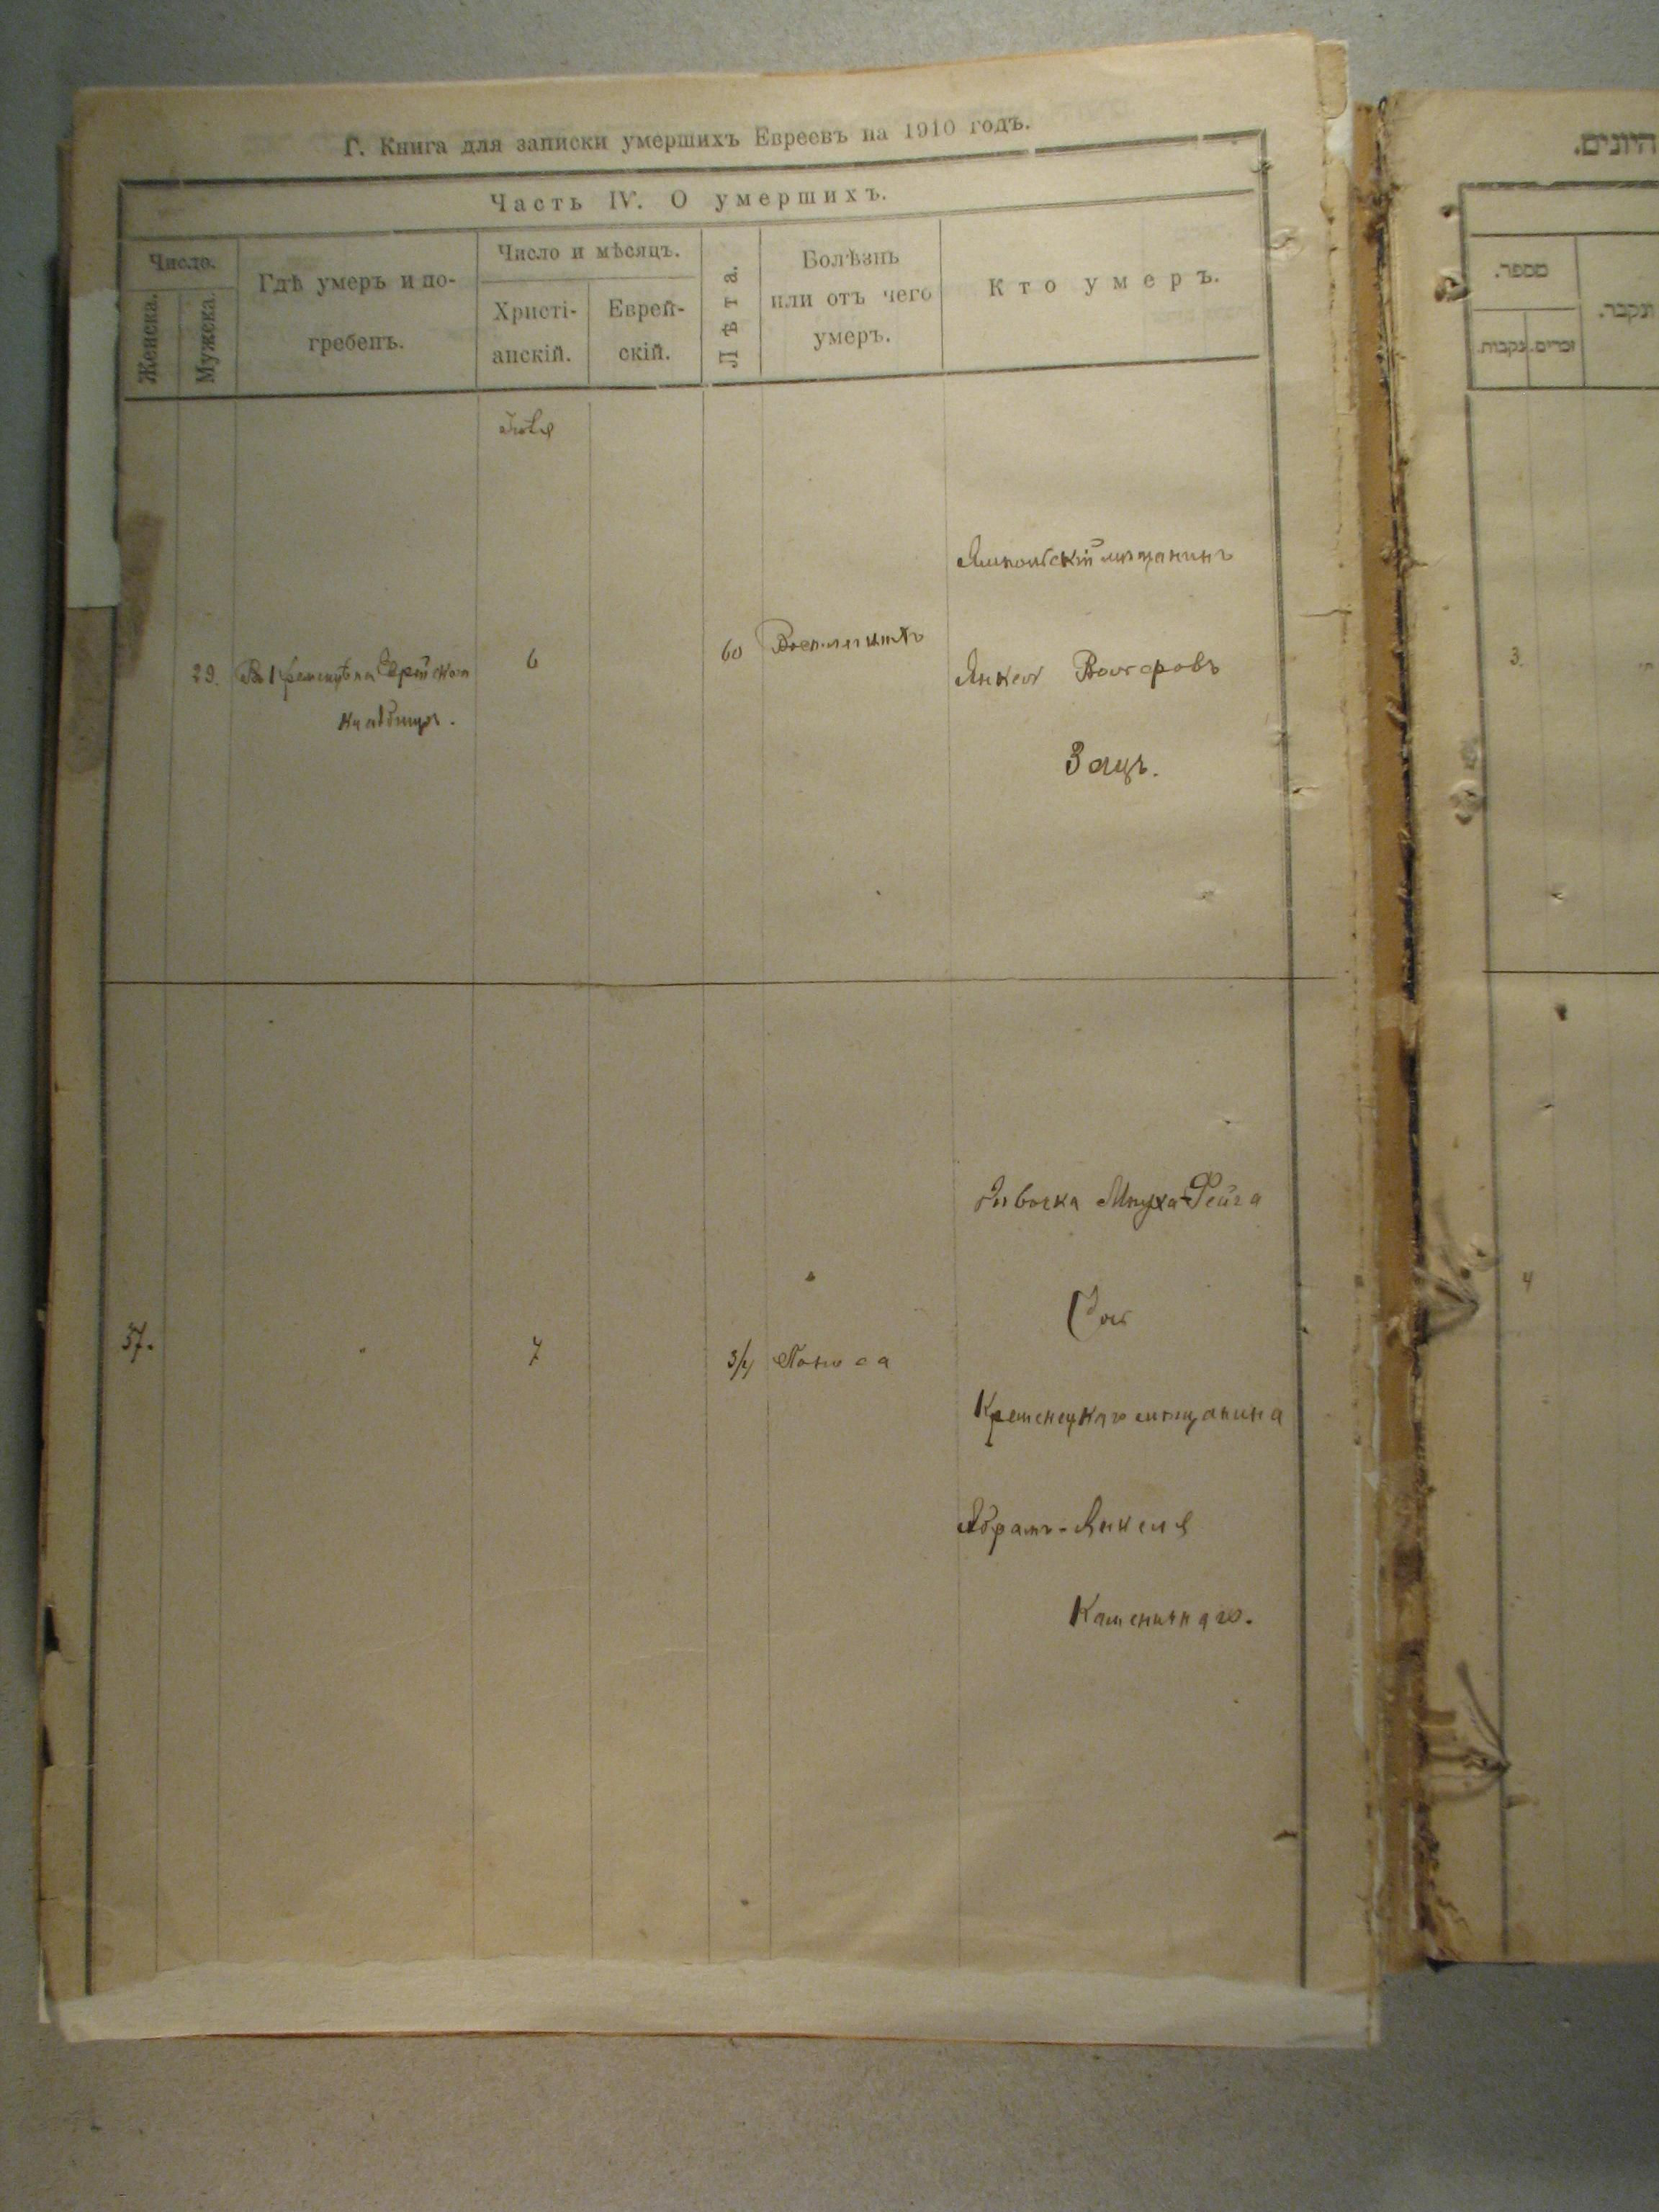 Г. Книга для записки умершихъ Евреевъ на 1910 годъ.
Часть IV. О умершихъ.
Число.
Женска.
Мужска.
Гдѣ умеръ и по-
гребенъ.
Число и мѣсяцъ.
Христі-
анскій.
Еврей-
скій.
Лѣта.
Болѣзнь
или отъ чего
умеръ.
Кто умеръ.
Іюля
29.
Въ Кременцѣ на Еврейском
кладбищѣ.
6
60
Воспаленія
Ямпольскій мѣщанинъ
Янкель Волеровъ
Заецъ.
37.
"
7
3/4
Поноса
Дѣвочка Мнуха-Фейга
Дочь
Кременецкаго мѣщанина
Абрамъ-Янкеля
Каменнаго.
היונים.
מספר.
נקבות.
זכרים.
ונקבר.
3.
4